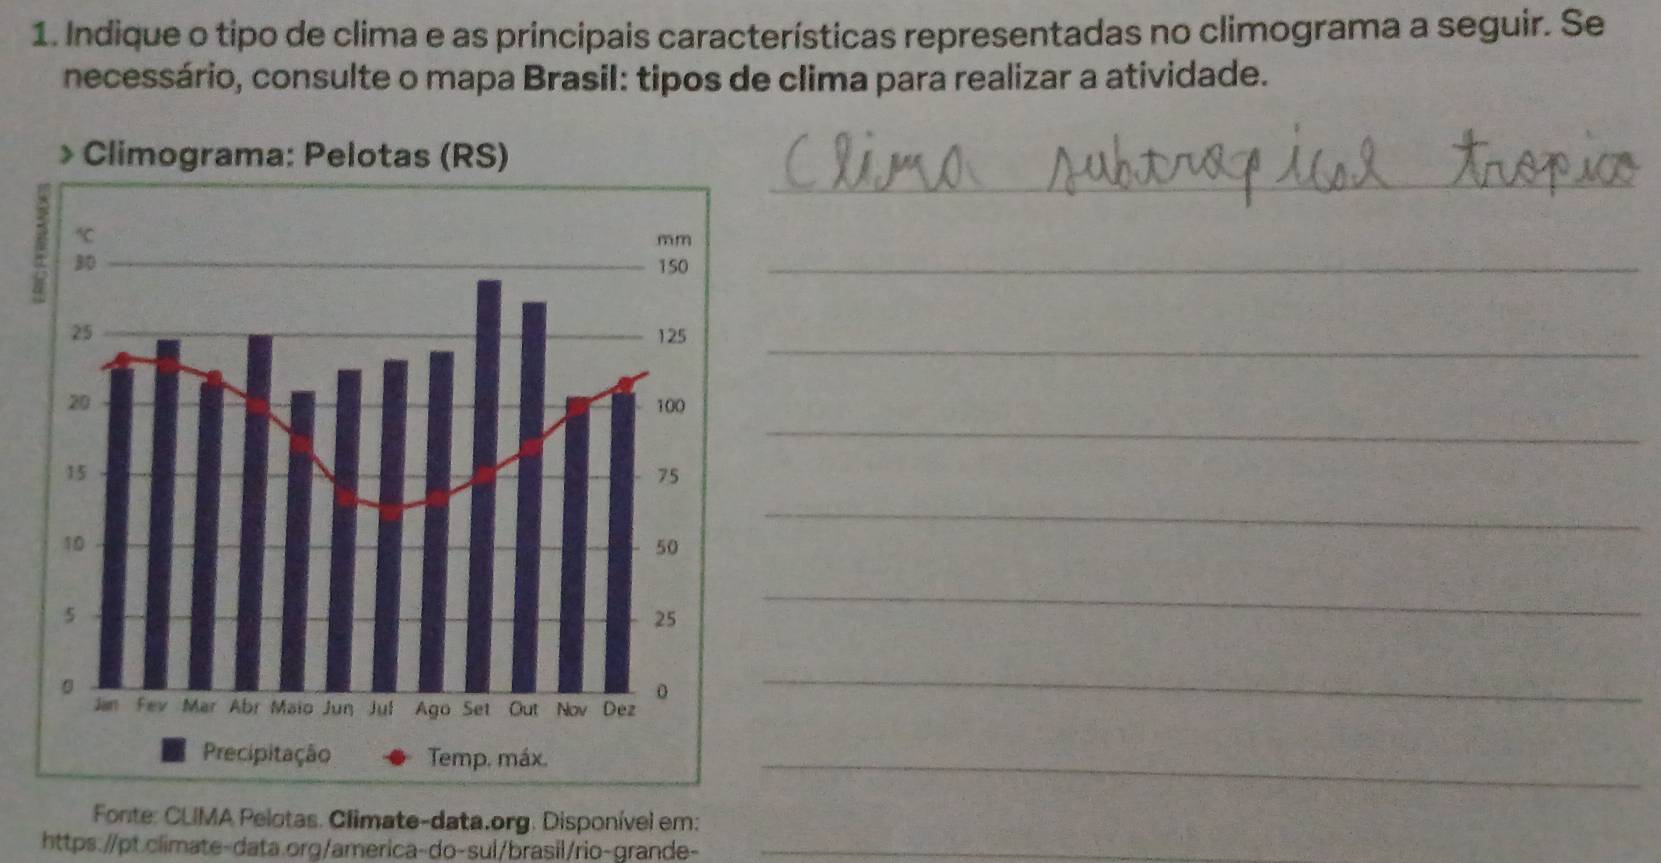 1. Indique o tipo de clima e as principais características representadas no climograma a seguir. Se
necessário, consulte o mapa Brasil: tipos de clima para realizar a atividade.
› Climograma: Pelotas (RS)
Clima subtropical tropico
ERIC FERNANDES
°C mm
30 150
25 125
20 100
15 75
10 50
5 25
0 0
Jan Fev Mar Abr Maio Jun Jul Ago Set Out Nov Dez
Precipitação Temp. máx.
Fonte: CLIMA Pelotas. Climate-data.org. Disponível em:
https://pt.climate-data.org/america-do-sul/brasil/rio-grande-